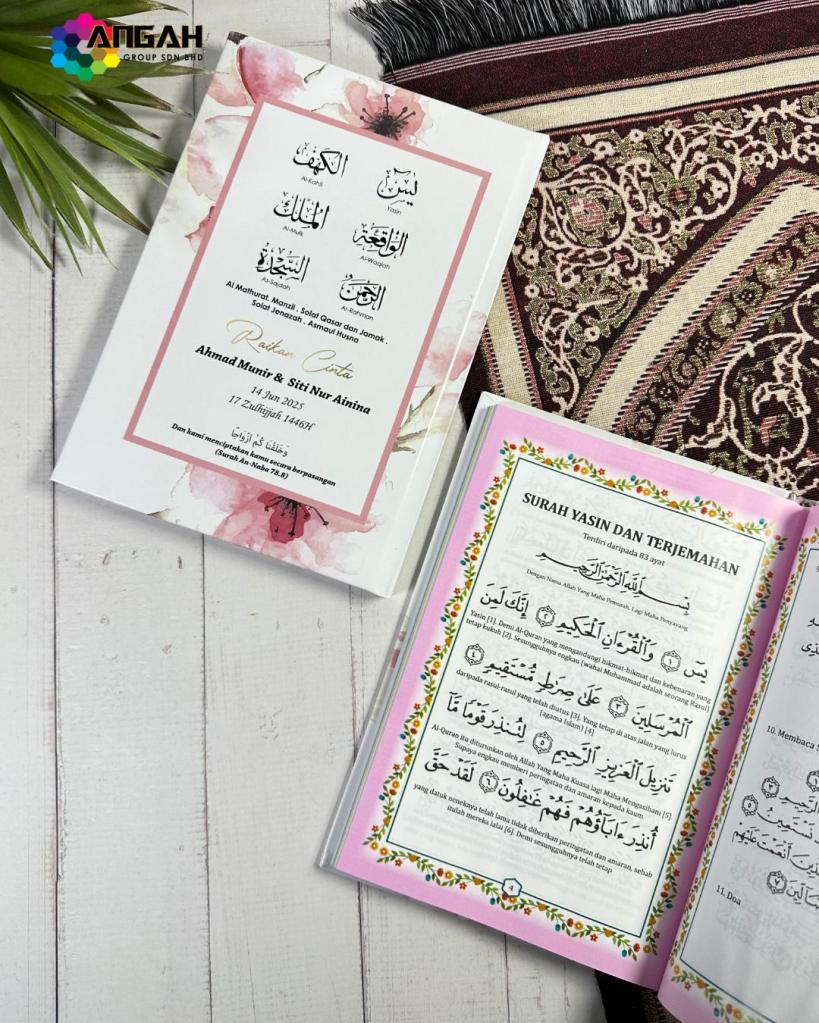 ANGAH
GROUP SDN BHD
الكهف
Al-Kahfi
يس
Yasin
الملك
Al-Mulk
الواقعة
Al-Waqiah
السجدة
As-Sajdah
الرحمن
Ar-Rahman
Al Mathurat, Manzil . Solat Qasar dan Jamak .
Solat Jenazah . Asmaul Husna
Raikan Cinta
Ahmad Munir & Siti Nur Ainina
14 Jun 2025
17 Zulhijjah 1446H
وَخَلَقْنَا كُمْ أَزْوَاجًا
Dan kami menciptakan kamu secara berpasangan
(Surah An-Naba 78.8)
SURAH YASIN DAN TERJEMAHAN
Terdiri daripada 83 ayat
بِسْمِ ٱللَّهِ ٱلرَّحْمَٰنِ ٱلرَّحِيمِ
Dengan Nama Allah Yang Maha Pemurah, Lagi Maha Penyayang
يسٓ ١ وَٱلْقُرْءَانِ ٱلْحَكِيمِ ٢ إِنَّكَ لَمِنَ
Yasin [1]. Demi Al-Quran yang mengandungi hikmat-hikmat dan kebenaran yang
tetap kukuh [2]. Sesungguhnya engkau (wahai Muhammad adalah seorang Rasul)
ٱلْمُرْسَلِينَ ٣ عَلَىٰ صِرَٰطٍ مُّسْتَقِيمٍ ٤
daripada rasul-rasul yang telah diutus [3]. Yang tetap di atas jalan yang lurus
(agama Islam) [4]
تَنزِيلَ ٱلْعَزِيزِ ٱلرَّحِيمِ ٥ لِتُنذِرَ قَوْمًا مَّآ
Al-Quran itu diturunkan oleh Allah Yang Maha Kuasa lagi Maha Mengasihani [5].
Supaya engkau memberi peringatan dan amaran kepada kaum
أُنذِرَ ءَابَآؤُهُمْ فَهُمْ غَٰفِلُونَ ٦ لَقَدْ حَقَّ
yang datuk neneknya telah lama tidak diberikan peringatan dan amaran, sebab
itulah mereka lalai [6]. Demi sesungguhnya telah tetap
4
10. Membaca
أَنْعَمْتَ عَلَيْهِمْ
11. Doa